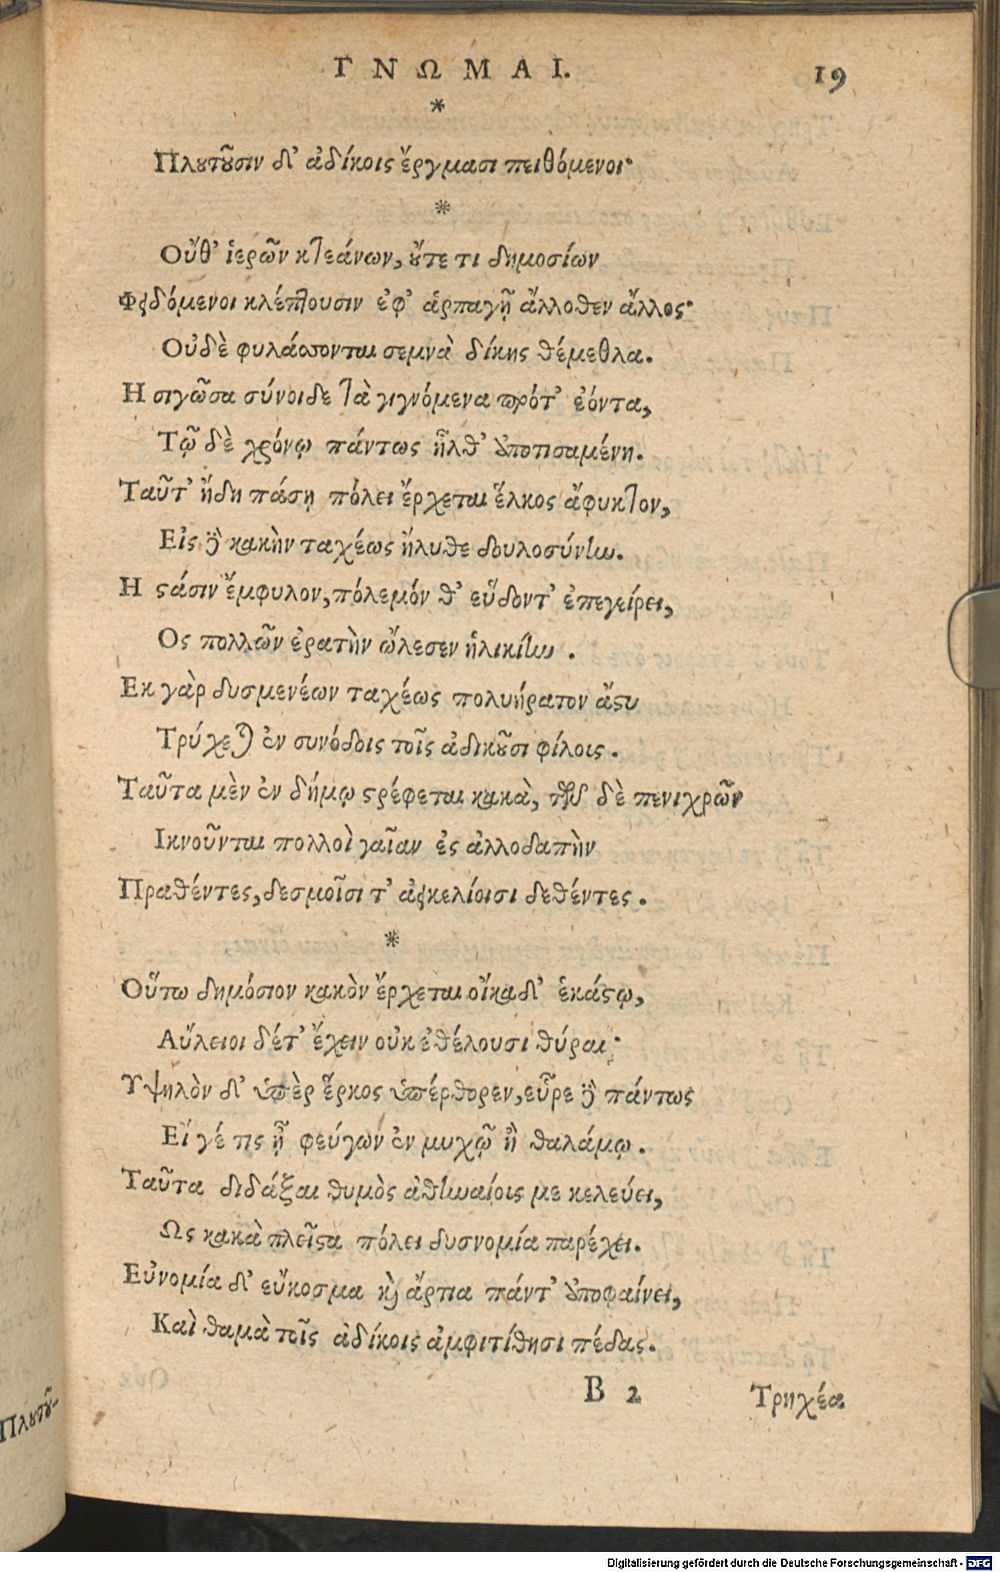 ΓΝΩΜΑΙ. 19
*
Πλουτοῦσιν δ' ἀδίκοις ἔργμασι πειθόμενοι·
*
Οὔθ' ἱερῶν κτεάνων, οὔτε τι δημοσίων
Φειδόμενοι κλέπτουσιν ἐφ' ἁρπαγῇ ἄλλοθεν ἄλλος·
Οὐδὲ φυλάσσονται σεμνὰ δίκης θέμεθλα.
Η σιγῶσα σύνοιδε τὰ γιγνόμενα πρότ' ἐόντα,
Τῷ δὲ χρόνῳ πάντως ἦλθ' ἀποτισαμένη.
Ταῦτ' ἤδη πάσῃ πόλει ἔρχεται ἕλκος ἄφυκτον,
Εἰς δὲ κακὴν ταχέως ἤλυθε δουλοσύνην.
Η στάσιν ἔμφυλον, πόλεμόν θ' εὕδοντ' ἐπεγείρει,
Ος πολλῶν ἐρατὴν ὤλεσεν ἡλικίην.
Εκ γὰρ δυσμενέων ταχέως πολυήρατον ἄστυ
Τρύχεται ἐν συνόδοις τοῖς ἀδικοῦσι φίλοις.
Ταῦτα μὲν ἐν δήμῳ στρέφεται κακὰ, τῶν δὲ πενιχρῶν
Ικνοῦνται πολλοὶ γαῖαν ἐς ἀλλοδαπὴν
Πραθέντες, δεσμοῖσι τ' ἀεικελίοισι δεθέντες.
*
Οὕτω δημόσιον κακὸν ἔρχεται οἴκαδ' ἑκάστῳ,
Αὔλειοι δέτ' ἔχειν οὐκ ἐθέλουσι θύραι·
Υψηλὸν δ' ὑπὲρ ἕρκος ὑπέρθορεν, εὗρε δὲ πάντως
Εἴ γέ τις ᾖ φεύγων ἐν μυχῷ ἢ θαλάμῳ.
Ταῦτα διδάξαι θυμὸς ἀθηναίοις με κελεύει,
Ως κακὰ πλεῖστα πόλει δυσνομία παρέχει.
Εὐνομία δ' εὔκοσμα καὶ ἄρτια πάντ' ἀποφαίνει,
Καὶ θαμὰ τοῖς ἀδίκοις ἀμφιτίθησι πέδας.
B 2 Τρηχέα
Πλουτοῦ-
Digitalisierung gefördert durch die Deutsche Forschungsgemeinschaft - DFG